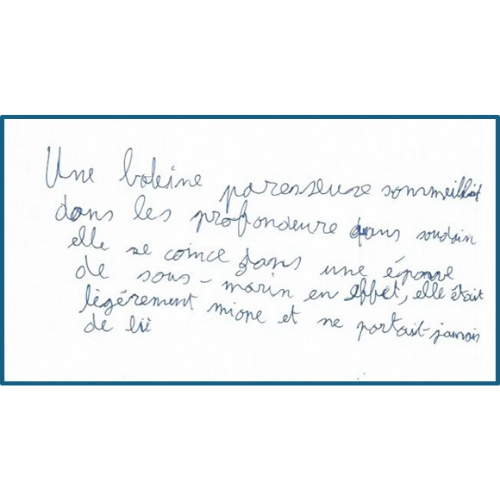 Une baleine paresseuse sommeillait
dans les profondeurs dans soudain
elle se coince dans une épave
de sous-marin en effet, elle était
légèrement miope et ne portait jamais
de